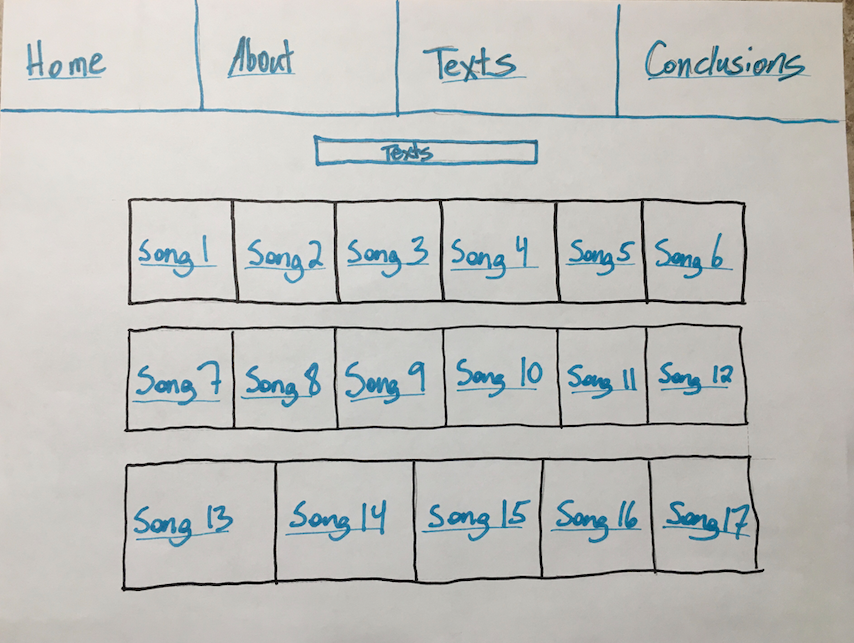 Home About Texts Conclusions
Texts
Song 1 Song 2 Song 3 Song 4 Song 5 Song 6
Song 7 Song 8 Song 9 Song 10 Song 11 Song 12
Song 13 Song 14 Song 15 Song 16 Song 17